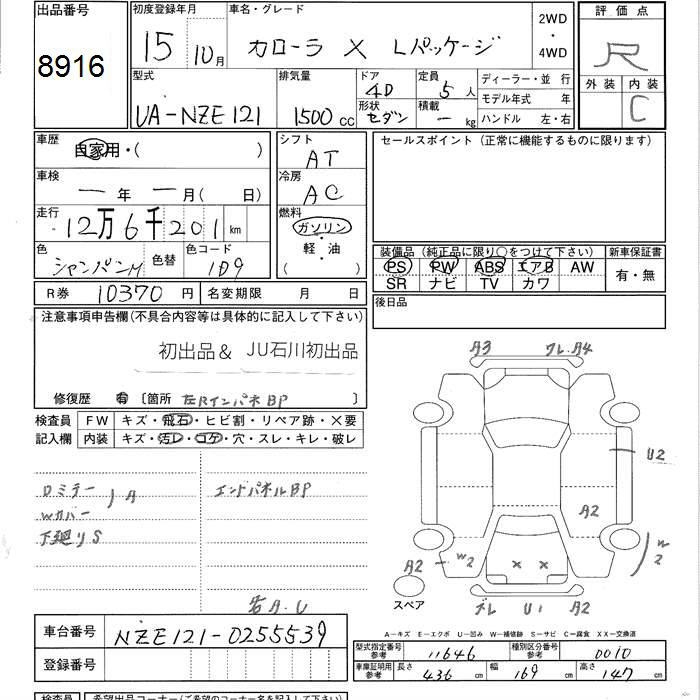 出品番号
8916
初度登録年月
15 10月
車名・グレード
カローラ X Lパッケージ
2WD
・
4WD
評価点
R
外装 内装
C
型式
UA-NZE121
排気量
1500 cc
ドア
4D
形状
セダン
定員
5 人
積載
ー kg
ディーラー・並行
モデル年式 年
ハンドル 左・右
車歴
自家用・( )
車検
ー 年 ー 月( 日)
走行
12万6千201 km
色
シャンパンM
色替
色コード
1D9
シフト
AT
冷房
AC
燃料
ガソリン
・
軽・油
( )
セールスポイント(正常に機能するものに限ります)
装備品(純正品に限り○をつけて下さい)
PS PW ABS エアB AW
SR ナビ TV カワ
新車保証書
有・無
R券 10370 円
名変期限 月 日
後日品
注意事項申告欄(不具合内容等は具体的に記入して下さい)
初出品& JU石川初出品
修復歴 有 〔箇所 左RインパネBP 〕
検査員
記入欄
FW キズ・飛石・ヒビ割・リペア跡・X要
内装 キズ・汚レ・コゲ・穴・スレ・キレ・破レ
Dミラー
Wカバー
A
下廻りS
エンドパネルBP
各A.U
A3 フレ A4
U2
A2
W2
W2
A2
スペア
ブレ U1 A2
A―キズ E―エクボ U―凹み W―補修跡 S―サビ C―腐食 XX―交換済
車台番号
NZE121-0255539
登録番号
型式指定番号
参考
11646
種別区分番号
参考
0010
車庫証明用
参考
長さ 436 cm
幅 169 cm
高さ 147 cm
検査員
希望出品コーナー(ご希望のコーナー名を記入して下さい)